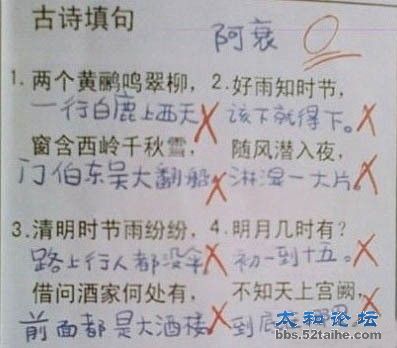 古诗填句
阿衰 0
1. 两个黄鹂鸣翠柳， 2. 好雨知时节，
一行白鹿上西天 该下就得下。
窗含西岭千秋雪， 随风潜入夜，
门伯东吴大翻船 淋湿一大片。
3. 清明时节雨纷纷， 4. 明月几时有？
路上行人都没伞 初一到十五。
借问酒家何处有， 不知天上宫阙，
前面都是大酒楼 到底
太和论坛
bbs.52taihe.com